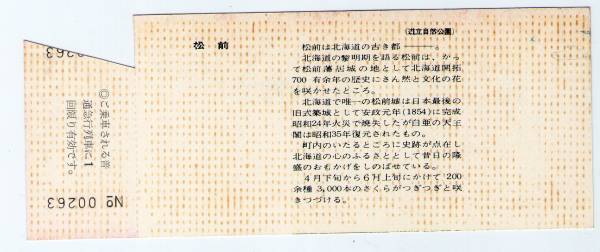 松前
(道立自然公園)
松前は北海道の古き都───。
北海道の黎明期を語る松前は、かっ
て松前藩居城の地として北海道開拓
700 有余年の歴史にさん然と文化の花
を咲かせたところ。
北海道で唯一の松前城は日本最後の
旧式築城として安政元年(1854)に完成
昭和24年火災で焼失したが白亜の天王
閣は昭和35年復元されたもの。
町内のいたるところに史跡が点在し
北海道の心のふるさととして昔日の隆
盛のおもかげをしのばせている。
4月下旬から6月上旬にかけて 200
余種 3,000本のさくらがつぎつぎと咲
きつづける。
◎ご乗車される普
通急行列車に1
回限り有効です。
№ 00263
00263